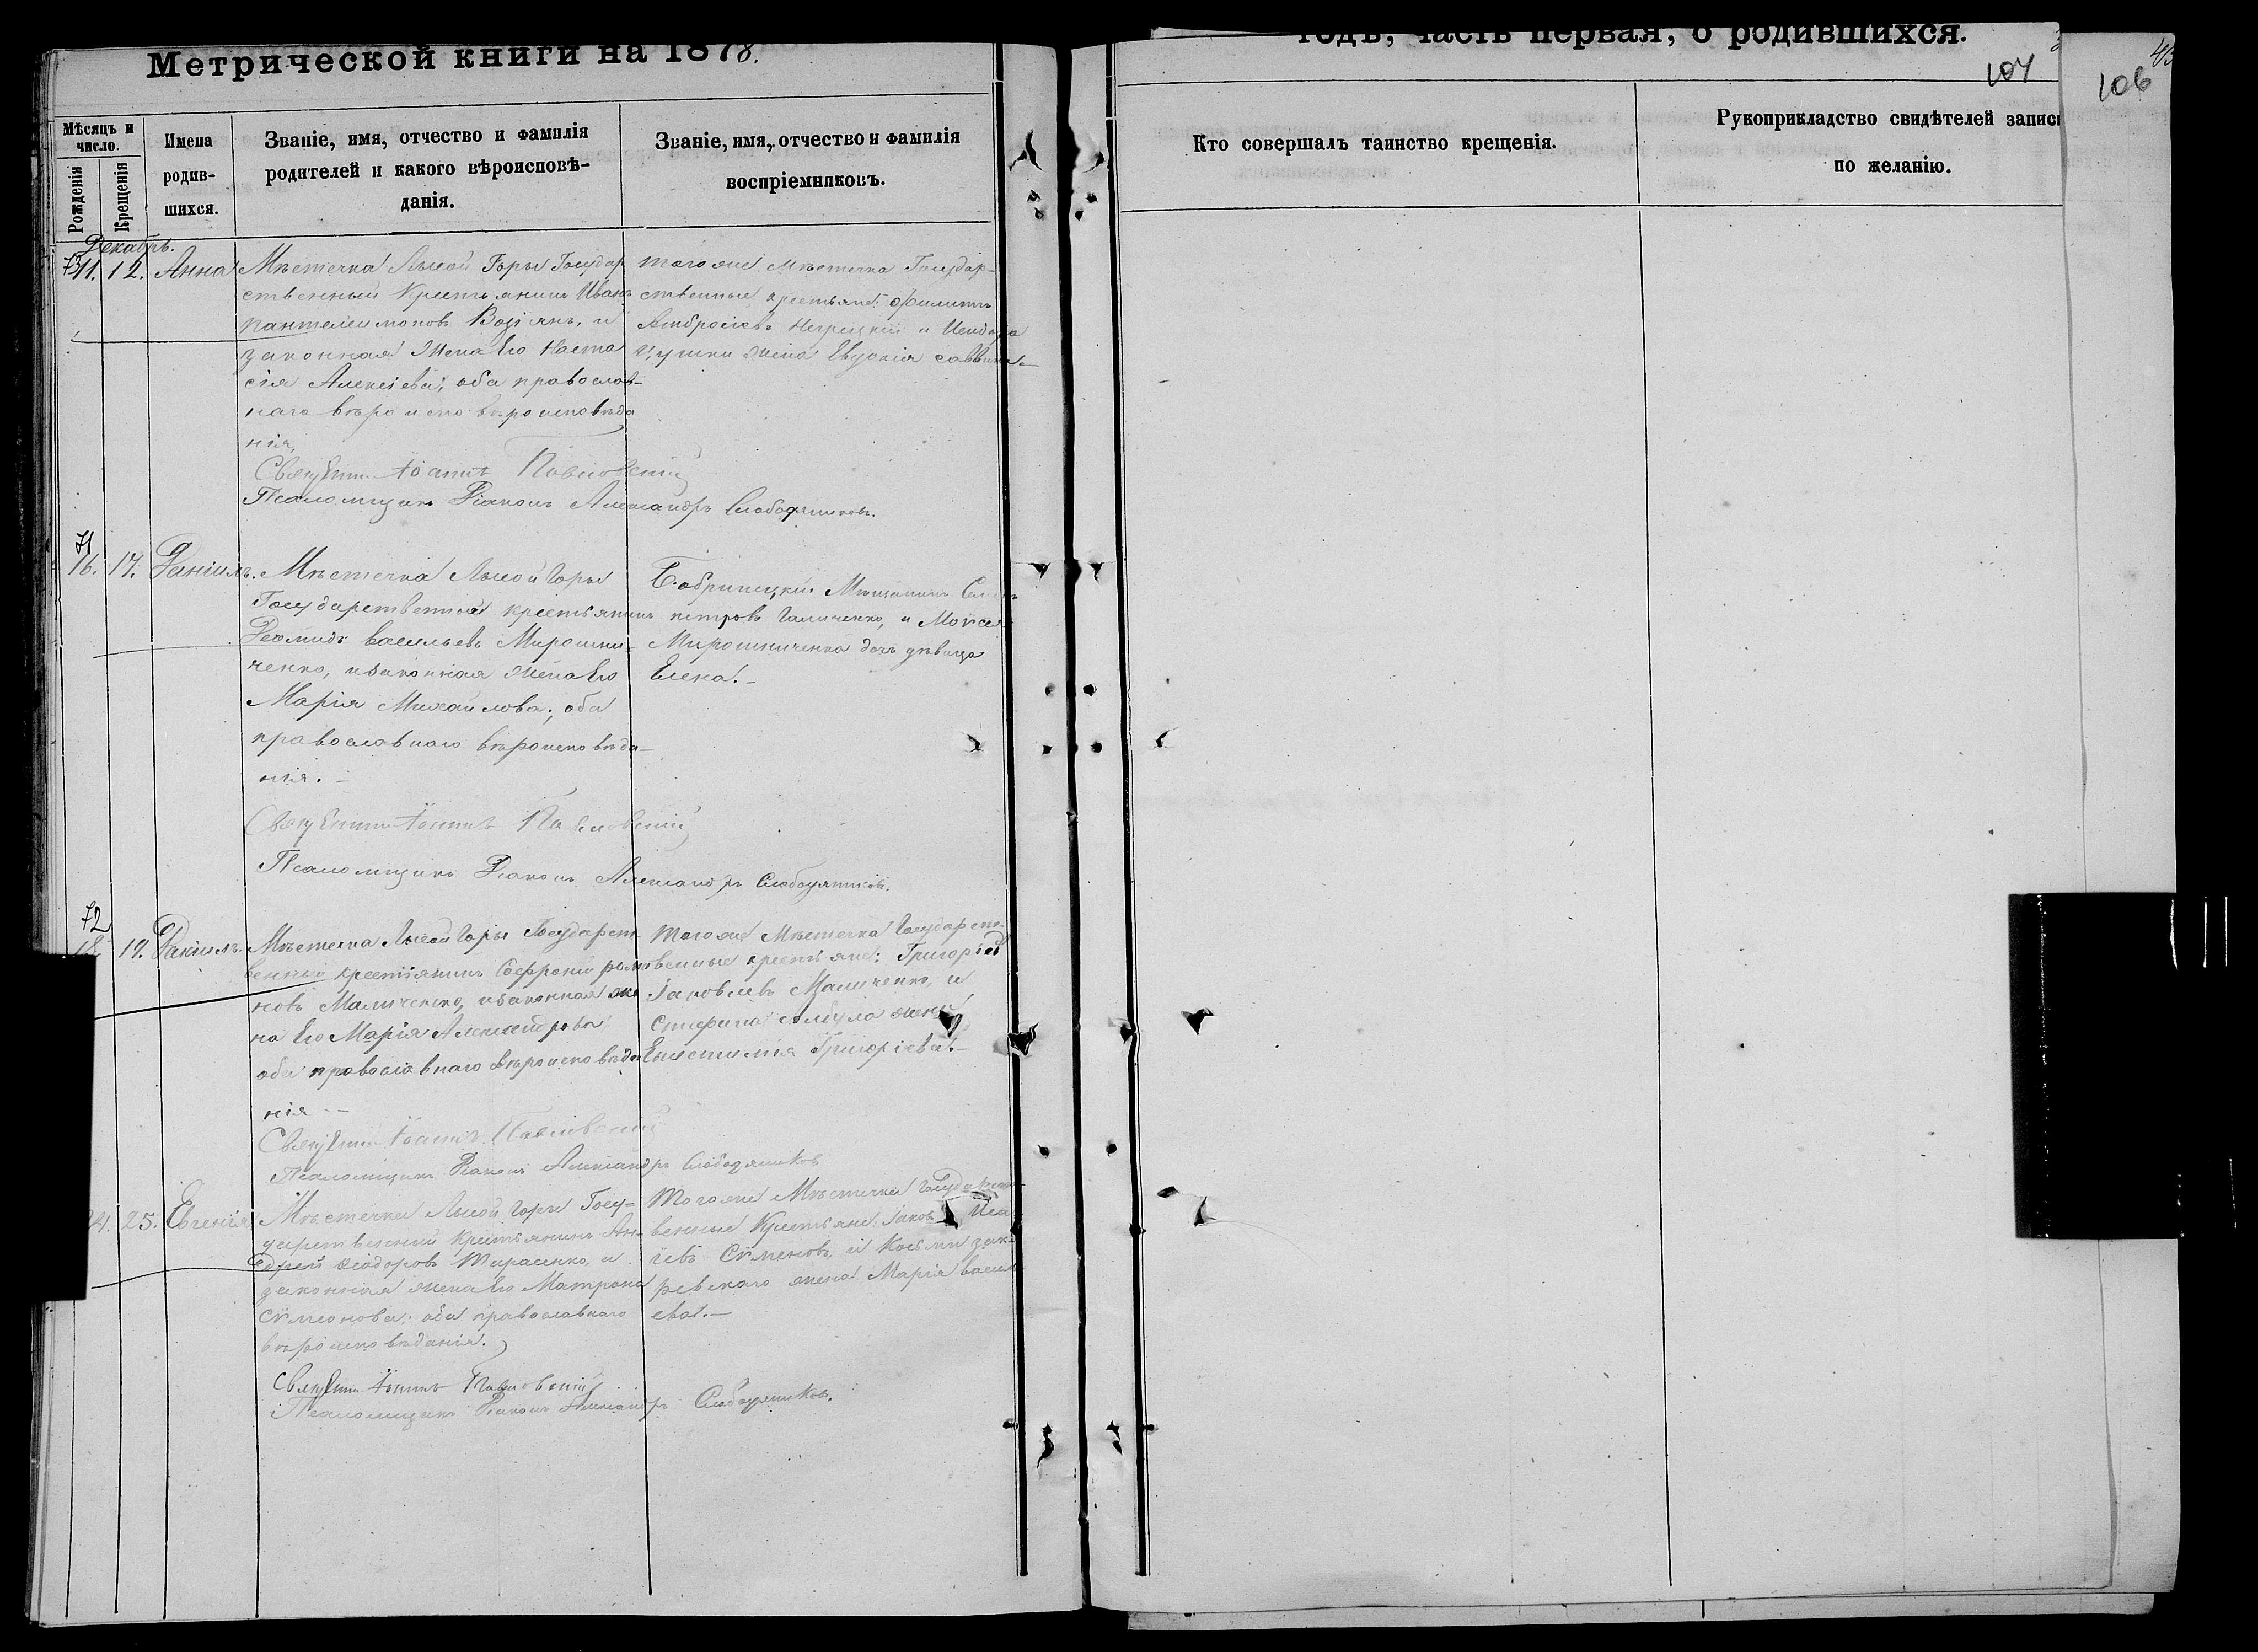 Метрической книги на 1878.
годъ, часть первая, о родившихся.
107
106
Мѣсяцъ и число.
Рожденія
Крещенія
Имена родив-
шихся.
Званіе, имя, отчество и фамилія
родителей и какого вѣроисповѣ-
данія.
Званіе, имя, отчество и фамилія
воспріемниковъ.
Кто совершалъ таинство крещенія.
Рукоприкладство свидѣтелей запис
по желанію.
Декабрь.
11. 12. Анна
Мѣстечка Лысой Горы Государ
ственный Крестьянинъ Иванъ
Пантелеимоновъ Возіянъ, и
законная жена Его Наста
сія Алексіева, оба православ-
наго вѣроиспо вѣроисповѣда
нія,
того же Мѣстечка Государ-
ственные крестьяне: Филиппъ
Амвросіевъ Негрецкій и
жена Евдокія Саввина.
Священникъ Іоаннъ Павловскій
Псаломщикъ Діаконъ Александръ Слободяниковъ.
71
16. 17. Даніилъ.
Мѣстечка Лысой Горы
Государственный крестьянинъ
Діомидъ Васильевъ Мирошни-
ченко, и законная жена Его
Марія Михаилова; оба
православнаго вѣроисповѣда-
нія. -
Бобринецкій Мѣщанинъ
Петровъ Галиченко, и Моисея
Мирошниченка дочь дѣвица
Елена. -
Священникъ Іоаннъ Павловскій
Псаломщикъ Діаконъ Александръ Слободяниковъ.
72
18. 19. Даніилъ.
Мѣстечка Лысой Горы Государст-
венный крестіянинъ Софроній
новъ Маличенко, и законная же
на Его Марія Александрова
оба православнаго вѣроисповѣда
нія. -
того же Мѣстечка Государст-
венные крестьяне: Григорій
Іаковлевъ Маличенко, и
Стефана жена
Григоріева. -
Священникъ Іоаннъ Павловскій
Псаломщикъ Діаконъ Александръ Слободяников
24. 25. Евгенія
Мѣстечка Лысой Горы Госу-
дарственный Крестьянинъ Ан-
дрей Ѳеодоровъ Тирасенко, и
законная жена Его Матрона
Сѵмеонова; оба православнаго
вѣроисповѣданія.
Того же Мѣстечка Государст-
венные Крестьяне: Іаковъ Иса
іевъ Сѵменовъ, и Косьмы
ревскаго жена Марія Василь
ева. -
Священникъ Іоаннъ Павловскій
Псаломщикъ Діаконъ Александръ Слободяниковъ.